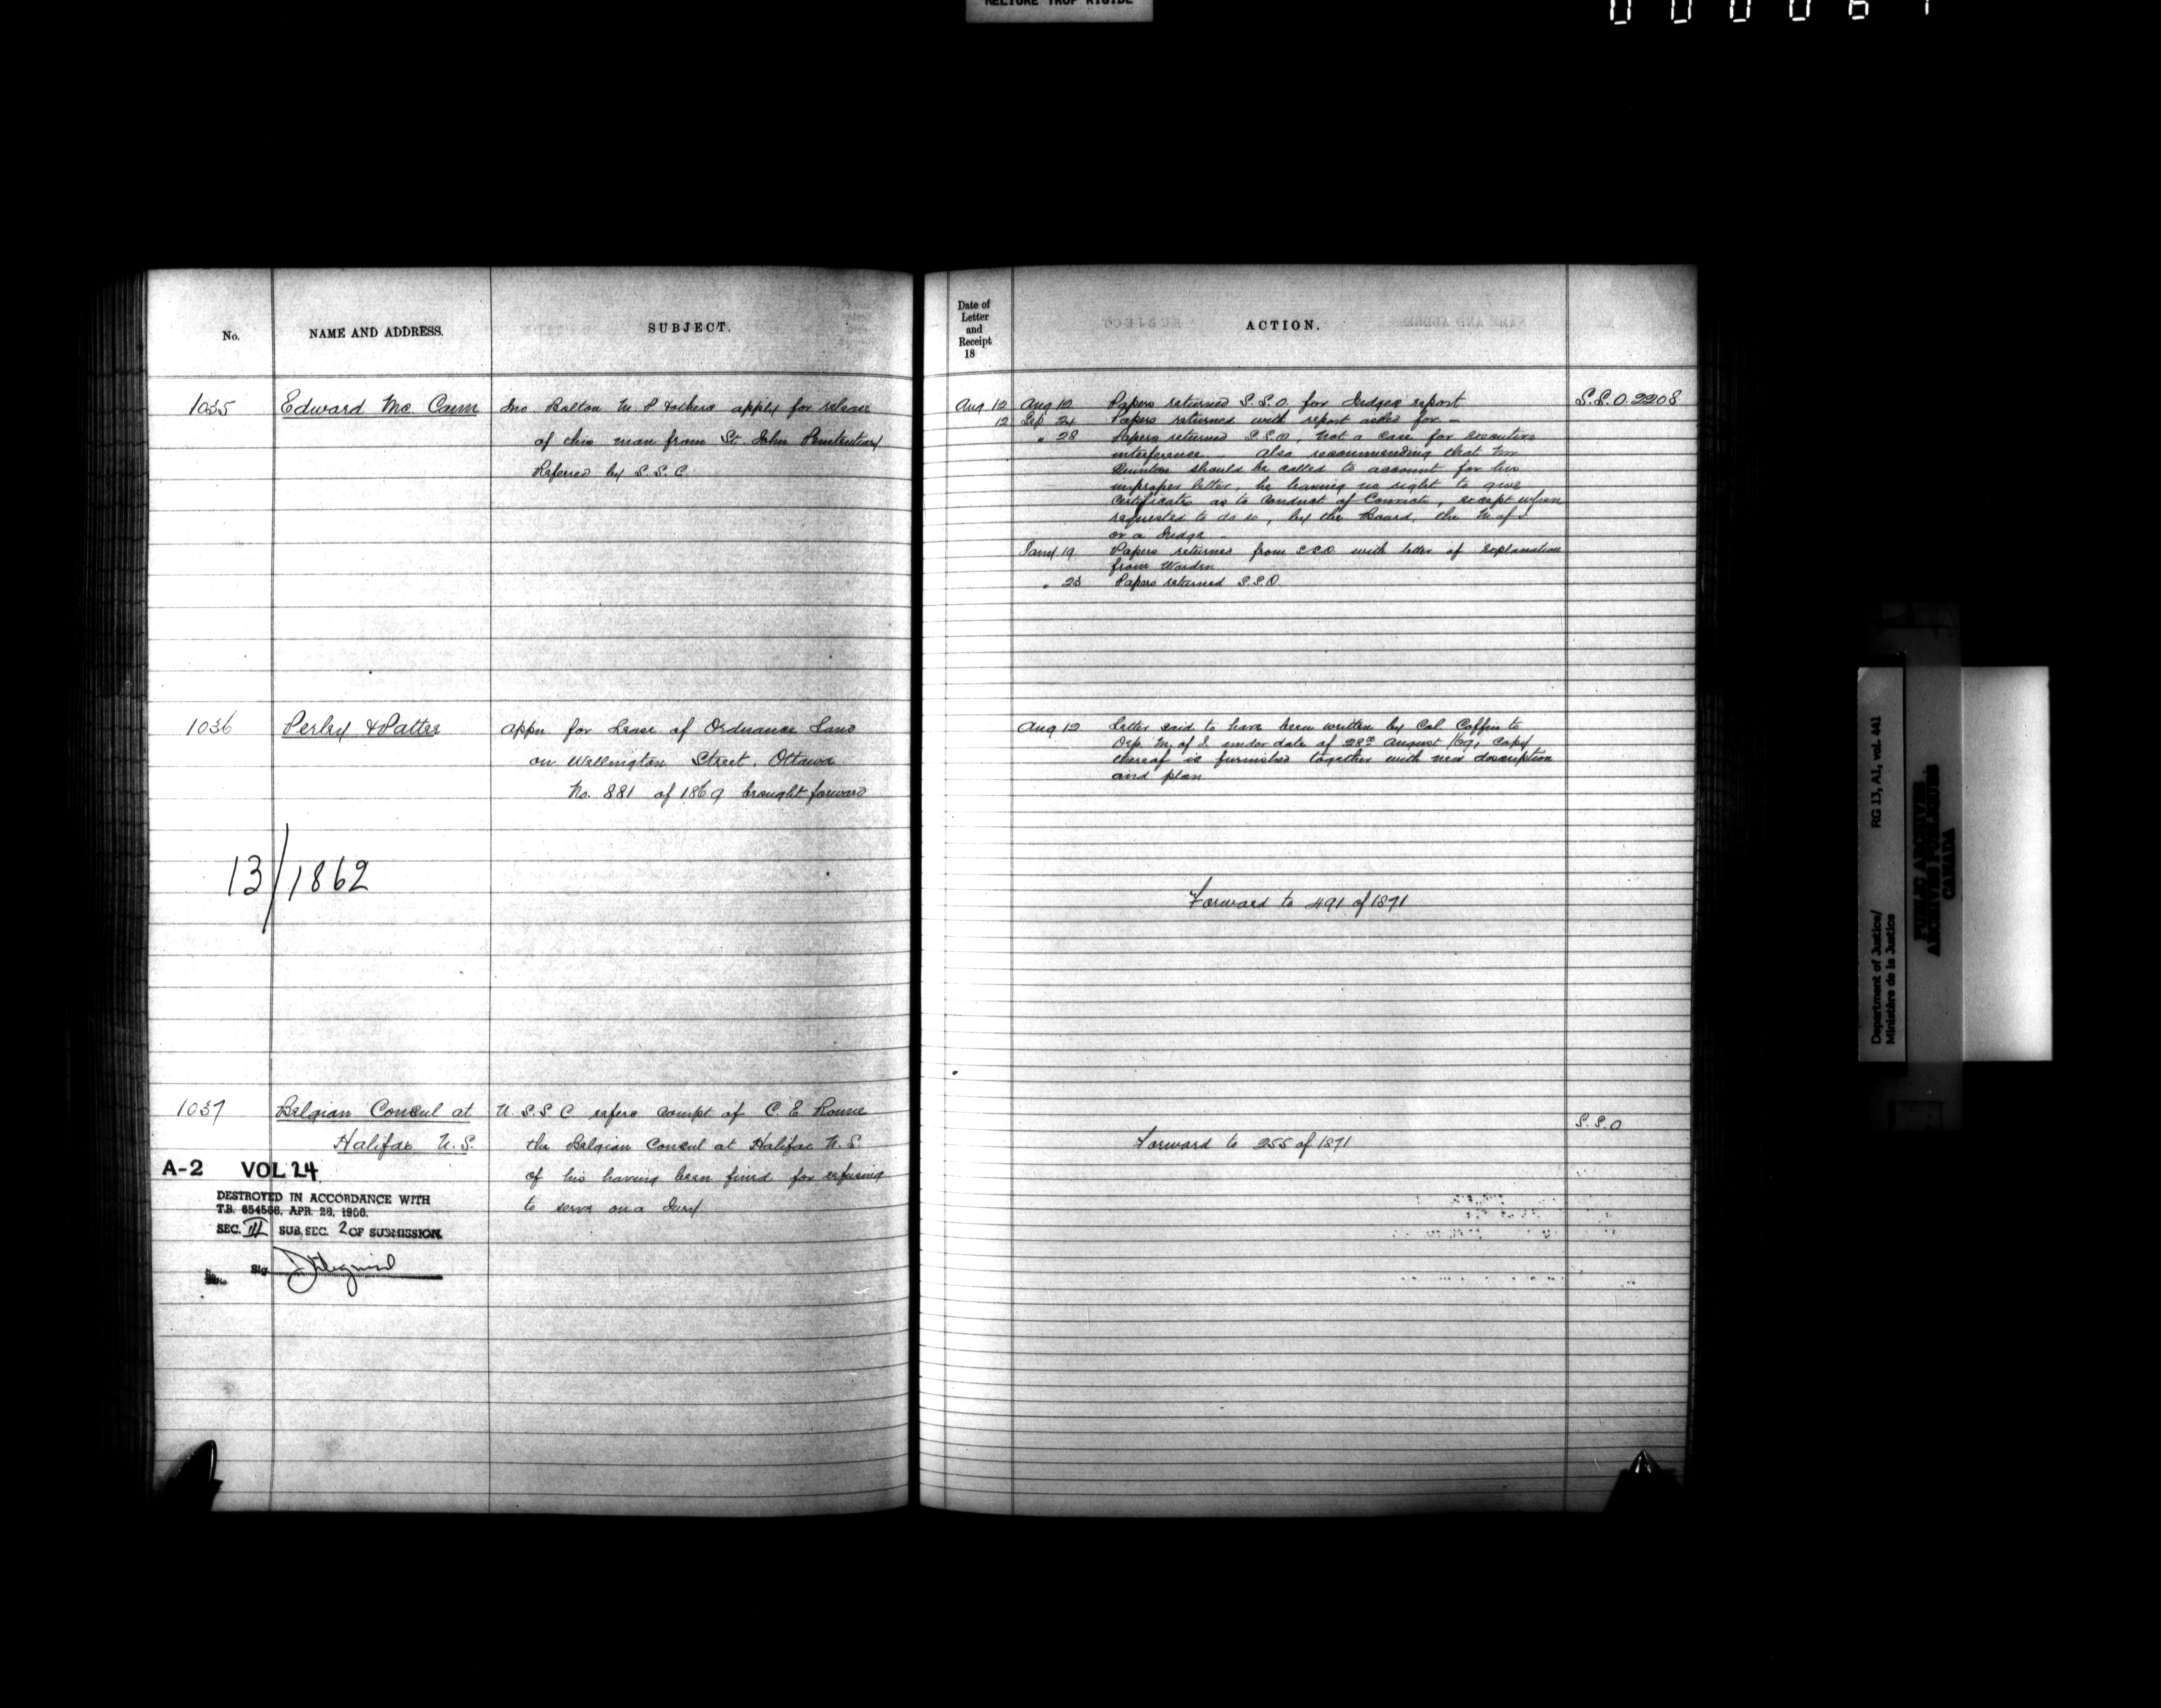 RELIURE TROP RIGIDE
No.
NAME AND ADDRESS.
SUBJECT.
1035
Edward Mc Cann
Jno. Bolton M. P & others apply for release
of this man from St. John Penitentiary
Referred by S. S. C
1036
Perley & Pattee
Appn. for Lease of Ordnance Land
on Wellington Street, Ottawa
No. 881 of 1869 brought forward
13/1862
1037
Belgian Consul at
Halifax N. S.
U. S. S C refers compt of C. E
the Belgian Consul at Halifax N. S
of his having been fined for refusing
to serve on a Jury
A-2 VOL 24
DESTROYED IN ACCORDANCE WITH
T.B. APR. 28, 1966.
SEC. III SUB. SEC. 2 OF SUBMISSION.
Sig
Date of
Letter
and
Receipt
18
ACTION.
Aug 12 Aug 12 Papers returned S. S. O. for Judges report
S. S. O. 2208
12 Sep 24 Papers returned with report asked for –
" 28 Papers returned S. S. O, Not a case for executive
interference – Also recommending that Mr
Quinton should be called to account for his
improper letter, he having no right to give
Certificate as to Conduct of Convicts, except when
requested to do so, by the Board, the M of J.
or a Judge –
Jany 19 Papers returned from SSO with letter of explanation
from Warden
" 23 Papers returned S. S. O.
Aug 12 Letter said to have been written by Col Coffin to
Dep. M. of J. under date of 28th August /69, Copy
thereof is furnished together with new description
and plan
Forward to 491 of 1871
S. S. O
Forward to 255 of 1871
Department of Justice/
Ministère de la Justice
RG 13, A1, vol. 441
PUBLIC ARCHIVES
ARCHIVES PUBLIQUES
CANADA